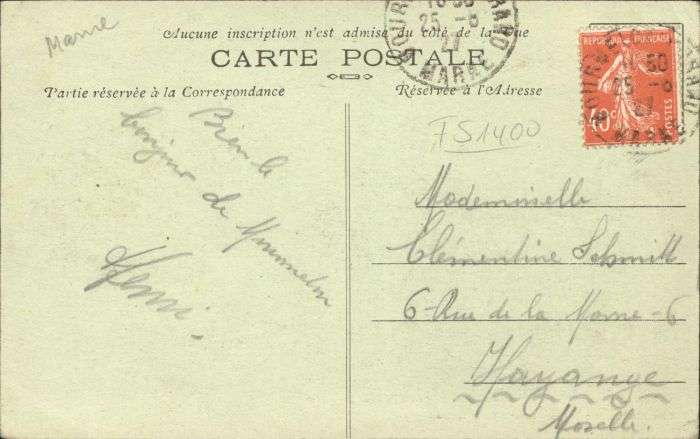 Marne
Aucune inscription n'est admise du côté de la vue
CARTE POSTALE
Partie réservée à la Correspondance
Réservée à l'Adresse
25 -8
21
MARNE
REPUBLIQUE FRANÇAISE
10c
POSTES
50
25 -8
MARNE
FS1400
Bien le
bonjour de Mourmelon
Henri
Mademoiselle
Clémentine Schmitt
6-Rue de la Marne-6
Hayange
Moselle.